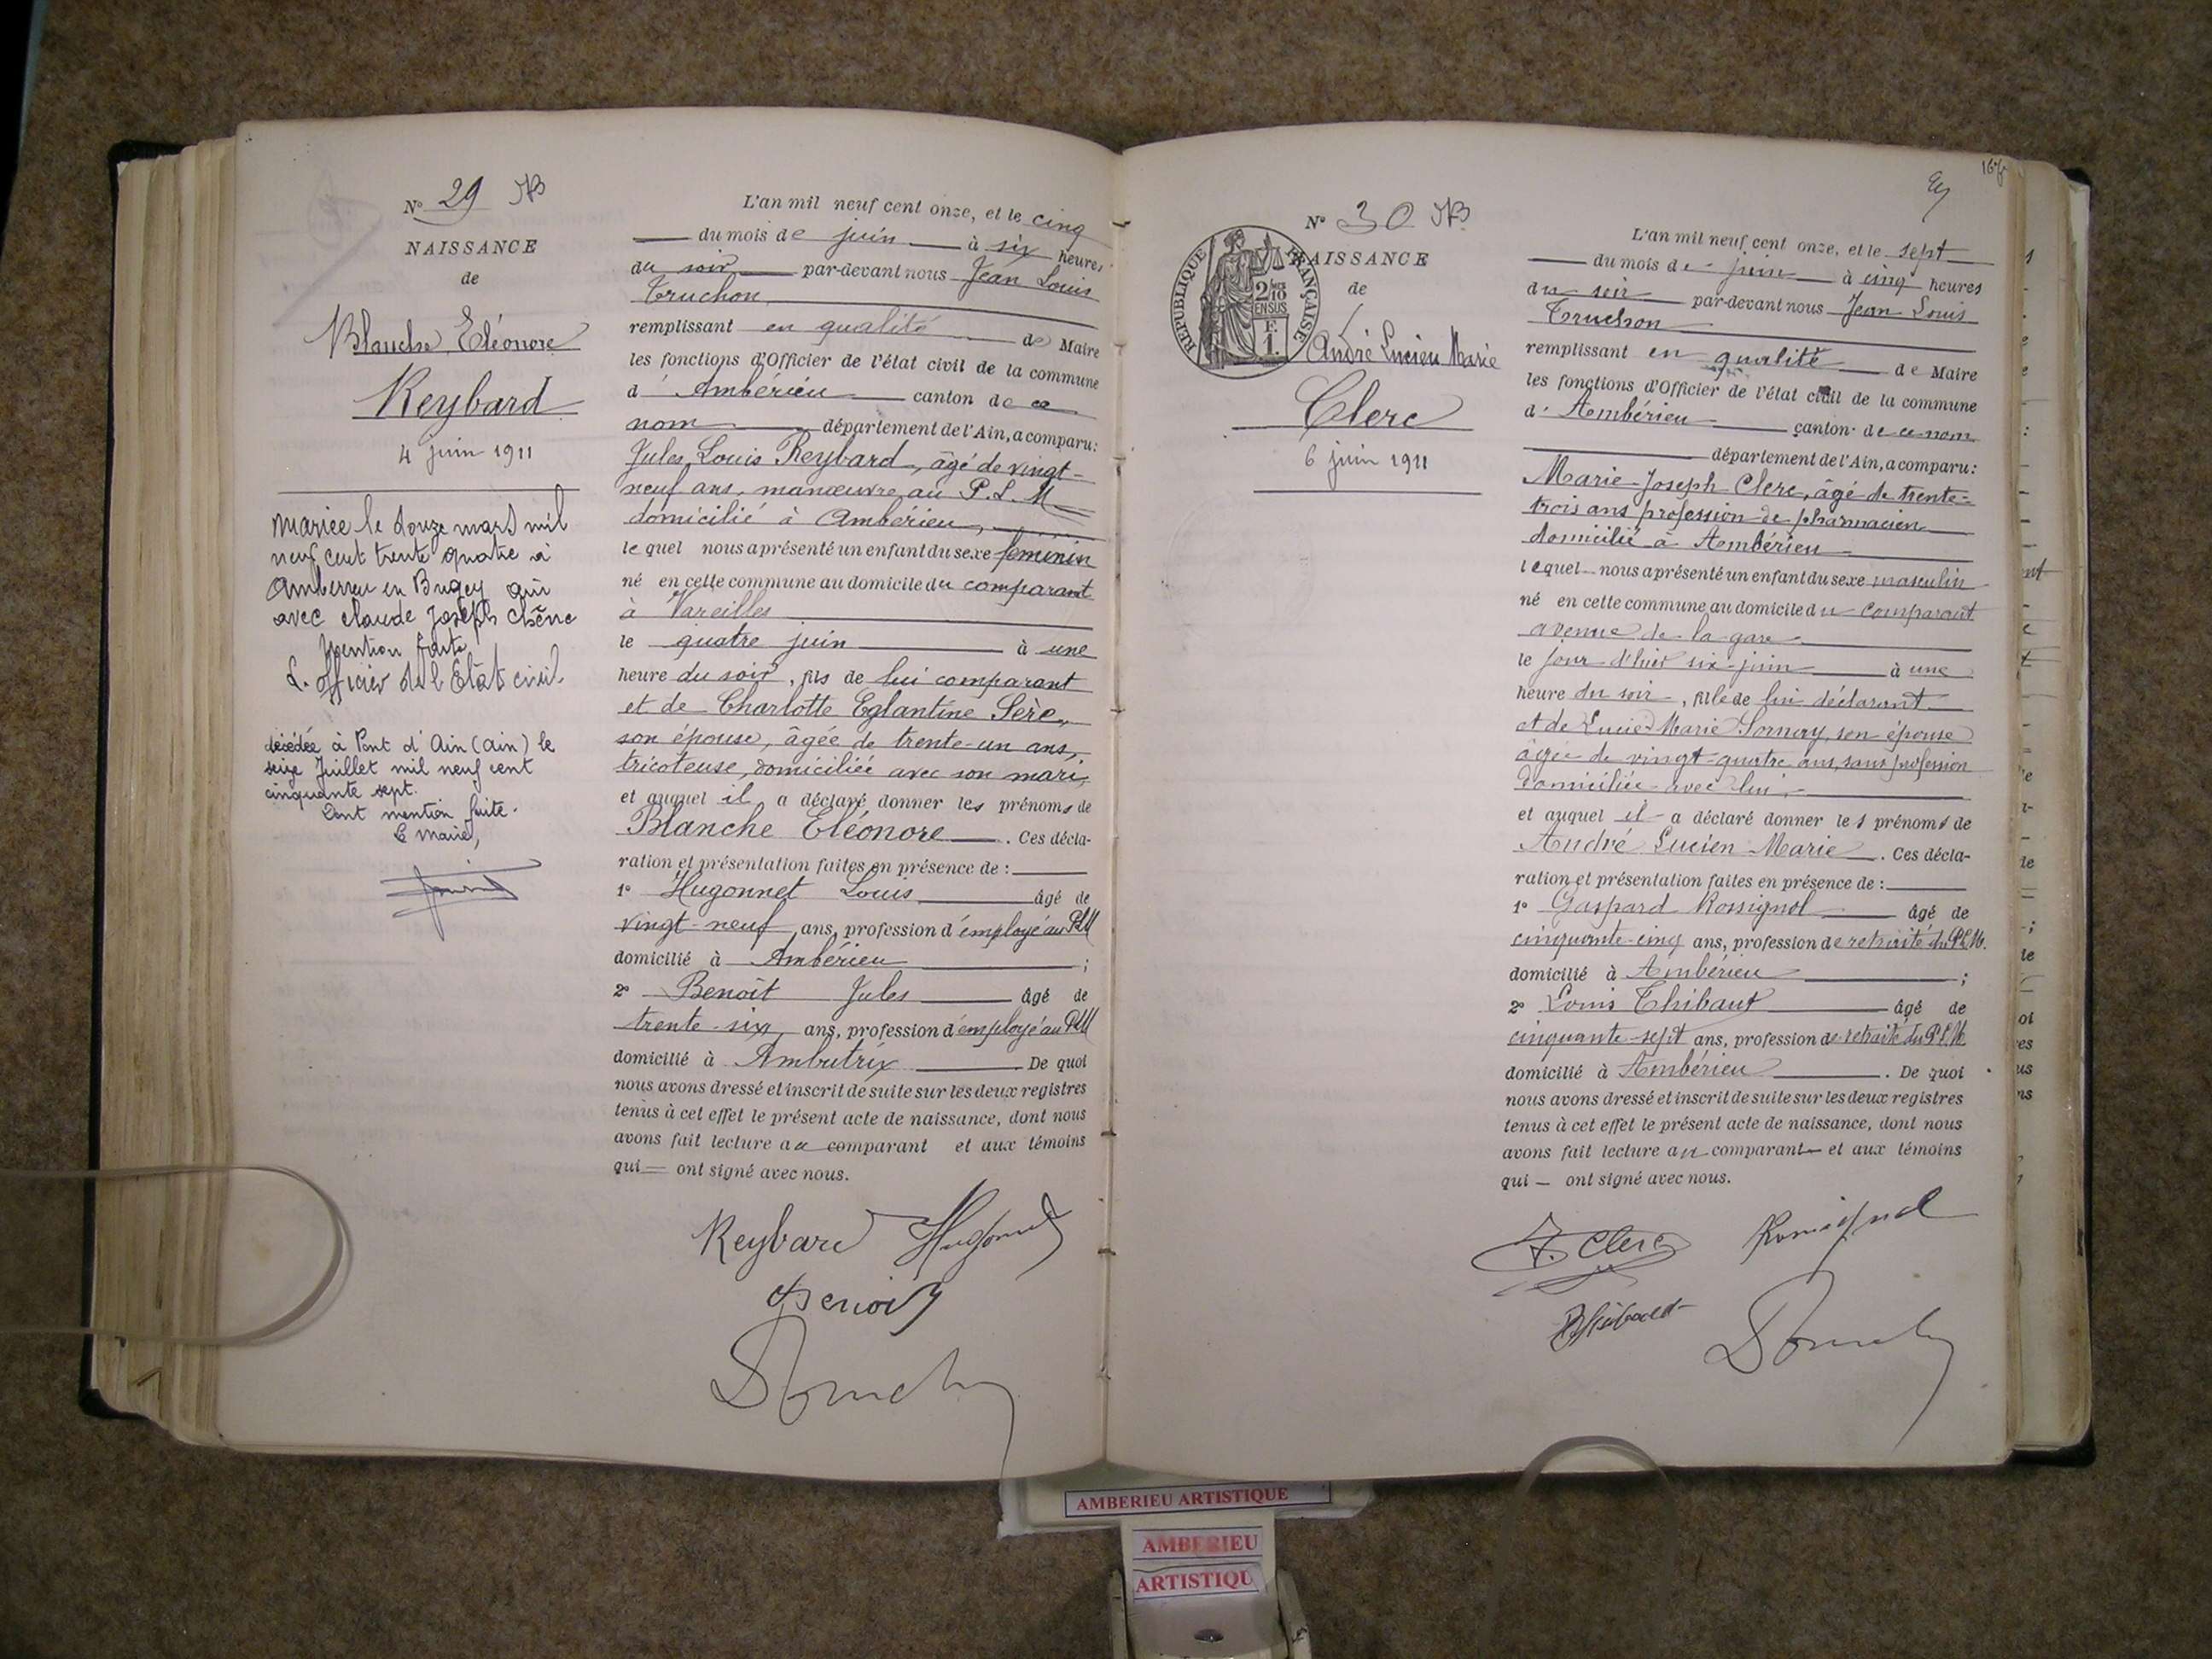 N° 29
NAISSANCE
de
Blanche Eléonore
Reybard
4 juin 1911
mariée le douze mars mil
neuf cent trente quatre à
Amberieu en Bugey Ain
avec claude Joseph Chêne
Mention faite
L'officier de l'Etat civil.
décédée à Pont d'Ain (Ain) le
seize Juillet mil neuf cent
cinquante sept.
Dont mention faite.
Le Maire,
L'an mil neuf cent onze, et le cinq
du mois de juin à six heures
du soir par-devant nous Jean Louis
Truchon
remplissant en qualité de Maire
les fonctions d'Officier de l'état civil de la commune
d'Ambérieu canton de ce
nom département de l'Ain, a comparu:
Jules Louis Reybard, âgé de vingt-
neuf ans, manœuvre au P.L.M
domicilié à Ambérieu,
lequel nous a présenté un enfant du sexe féminin
né en cette commune au domicile du comparant
à Vareilles
le quatre juin à une
heure du soir, fils de lui comparant
et de Charlotte Eglantine Sère,
son épouse, âgée de trente-un ans,
tricoteuse, domiciliée avec son mari,
et auquel il a déclaré donner les prénoms de
Blanche Eléonore. Ces décla-
ration et présentation faites en présence de :
1° Hugonnet Louis âgé de
vingt-neuf ans, profession d'employé au PLM
domicilié à Ambérieu ;
2° Benoît Jules âgé de
trente-six ans, profession d'employé au PLM
domicilié à Ambutrix De quoi
nous avons dressé et inscrit de suite sur les deux registres
tenus à cet effet le présent acte de naissance, dont nous
avons fait lecture au comparant et aux témoins
qui ont signé avec nous.
Reybard Hugonnet
Benoit
N° 30
NAISSANCE
de
REPUBLIQUE FRANÇAISE
2/10 EN SUS
F.
1.
André Lucien Marie
Clerc
6 juin 1911
L'an mil neuf cent onze, et le sept
du mois de juin à cinq heures
du soir par-devant nous Jean Louis
Truchon
remplissant en qualité de Maire
les fonctions d'Officier de l'état civil de la commune
d'Ambérieu canton de ce nom
département de l'Ain, a comparu:
Marie-Joseph Clerc, âgé de trente-
trois ans profession de pharmacien
domicilié à Ambérieu
lequel nous a présenté un enfant du sexe masculin
né en cette commune au domicile du comparant
avenue de la gare
le jour d'hier six juin à une
heure du soir, fils de lui déclarant
et de Lucie Marie Sornay, son épouse
âgée de vingt-quatre ans, sans profession
domiciliée avec lui,
et auquel il a déclaré donner les prénoms de
André Lucien Marie. Ces décla-
ration et présentation faites en présence de :
1° Gaspard Rossignol âgé de
cinquante-cinq ans, profession de retraité du P.L.M.
domicilié à Ambérieu ;
2° Louis Thibaut âgé de
cinquante-sept ans, profession de retraité du P.L.M.
domicilié à Ambérieu. De quoi
nous avons dressé et inscrit de suite sur les deux registres
tenus à cet effet le présent acte de naissance, dont nous
avons fait lecture au comparant et aux témoins
qui ont signé avec nous.
J. Clerc Rossignol
AMBERIEU ARTISTIQUE
AMBERIEU
ARTISTIQU